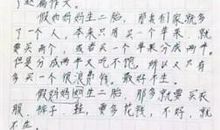 假如妈妈生二胎,那我们家就多
了一个人,本来只用买一个苹果,就
要买两个,或者买一个苹果分成两半,
但是分成两半又吃不饱,所以又只有
多买一个很浪费钱,最好不生。
假如妈妈生二胎,那多就要买衣
服、裤子、鞋,要多花钱,不好,就
不生。